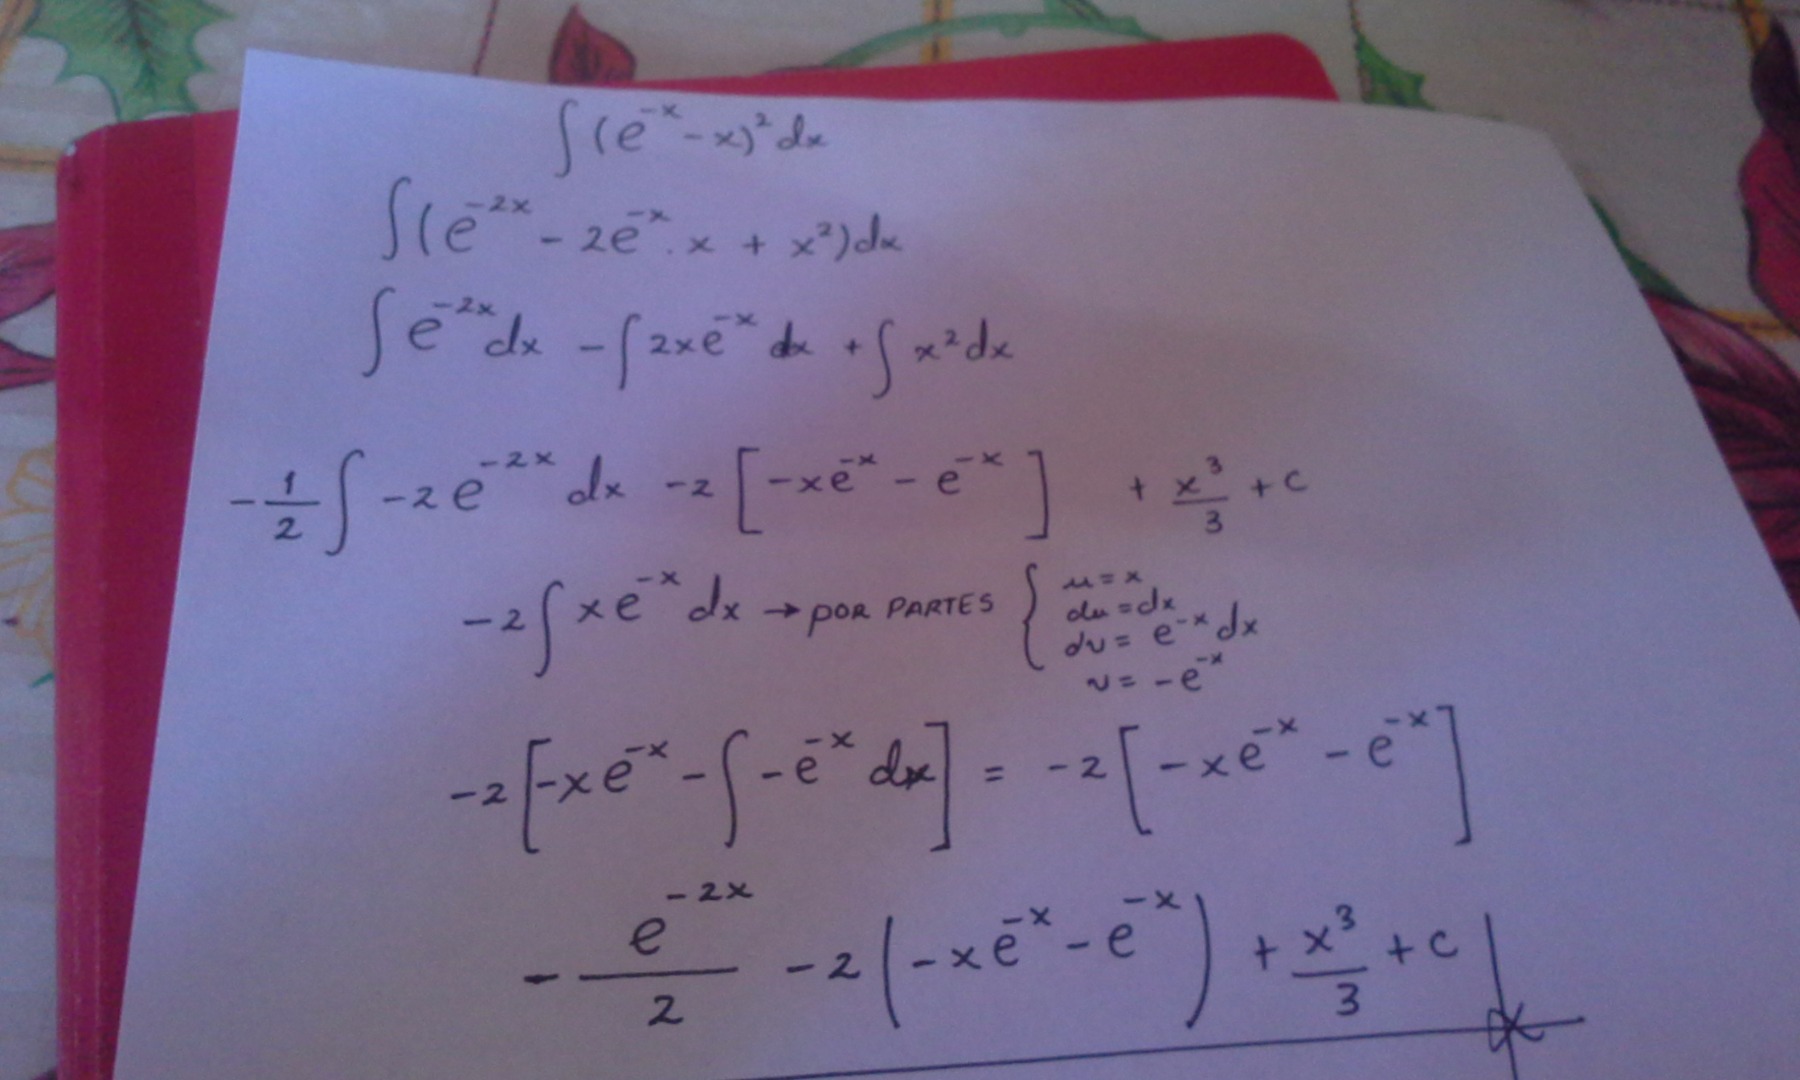 ∫(e⁻ˣ - x)² dx
∫(e⁻²ˣ - 2e⁻ˣ · x + x²)dx
∫e⁻²ˣdx - ∫2xe⁻ˣ dx + ∫x²dx
-1/2 ∫-2e⁻²ˣ dx -2[-xe⁻ˣ - e⁻ˣ] + x³/3 + c
-2∫xe⁻ˣdx → POR PARTES { u = x
du = dx
dv = e⁻ˣdx
v = -e⁻ˣ
-2[-xe⁻ˣ - ∫-e⁻ˣ dx] = -2[-xe⁻ˣ - e⁻ˣ]
-e⁻²ˣ/2 -2(-xe⁻ˣ - e⁻ˣ) + x³/3 + c